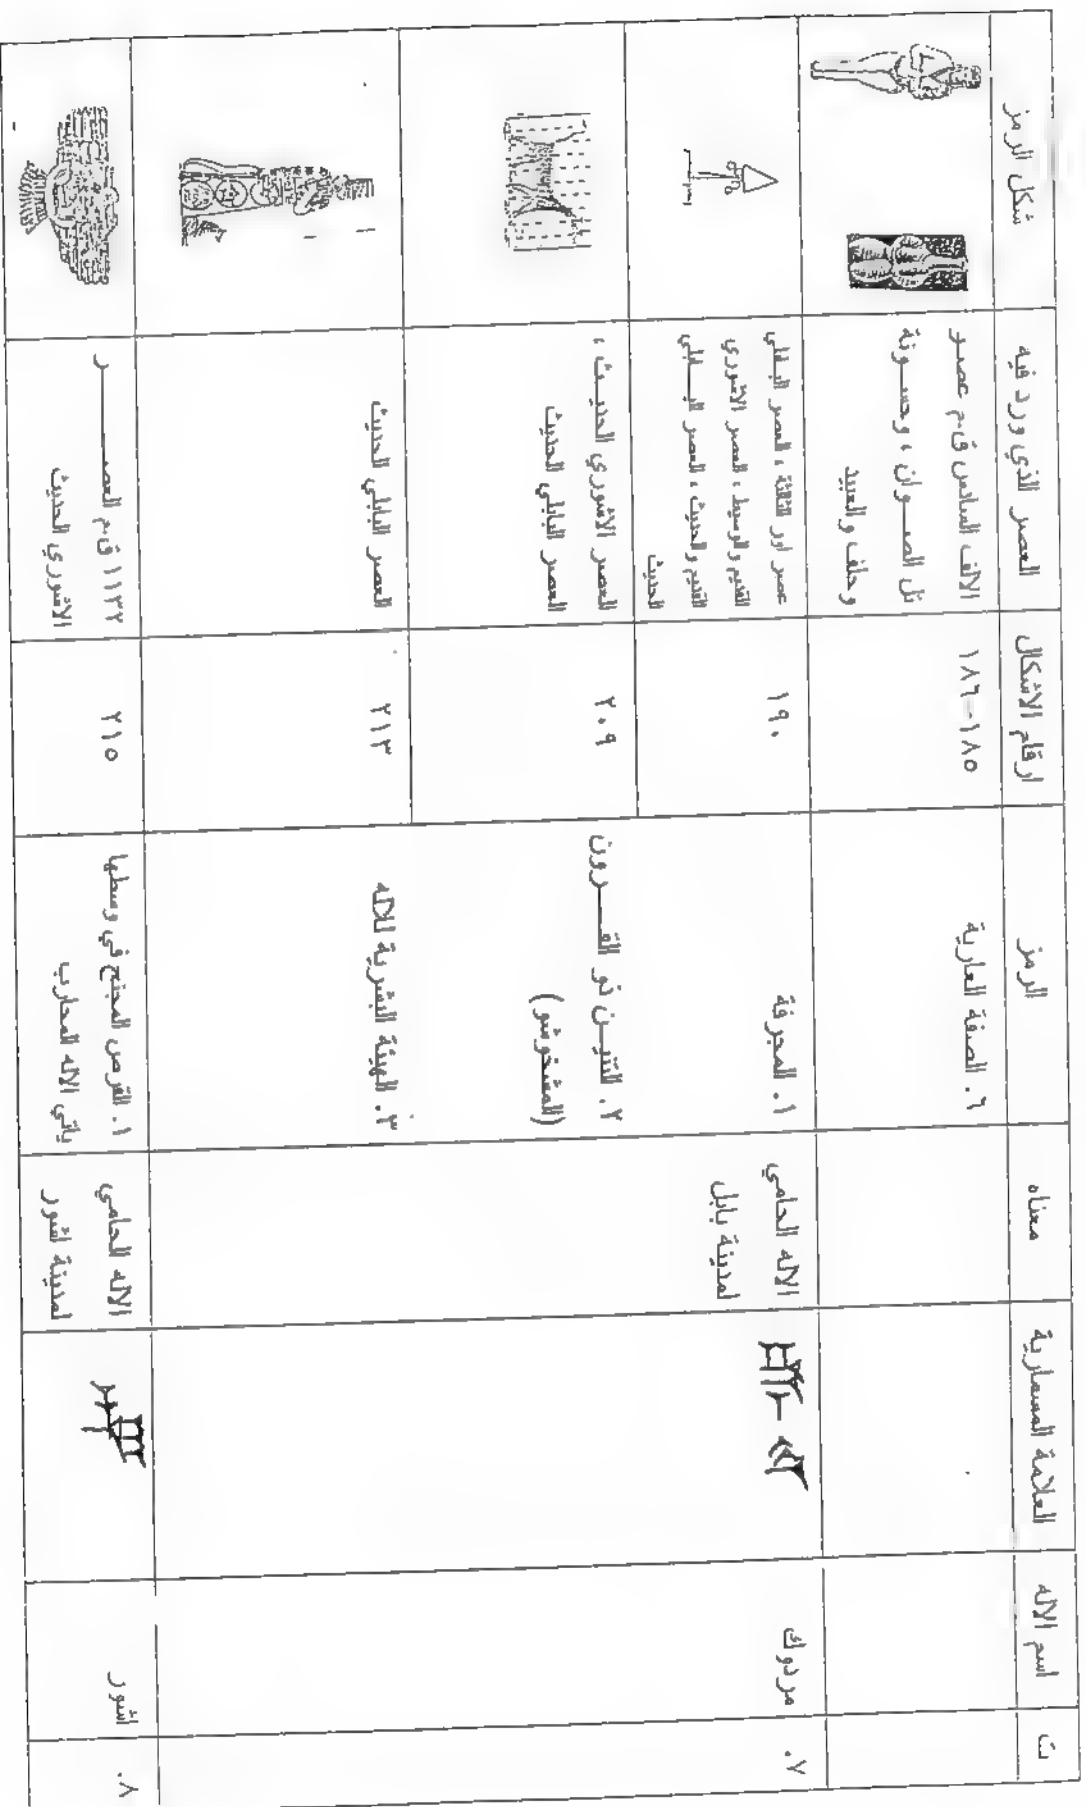 ت
اسم الاله
العلامة المسمارية
معناه
الرمز
ارقام الاشكال
العصر الذي ورد فيه
شكل الرمز
٦. الصفة العارية
١٨٥-١٨٦
الالف السادس ق.م عصر
تل الصوان ، وحسونة
وحلف والعبيد
٧.
مردوك
الاله الحامي
لمدينة بابل
١. المجرفة
١٩٠
عصر اور الثالثة ، العصر البابلي
القديم والوسيط ، العصر الاشوري
القديم والحديث ، العصر البابلي
الحديث
٢. التنين ذو القرون
(المشخوشو)
٢٠٩
العصر الاشوري الحديث ،
العصر البابلي الحديث
٣. الهيئة البشرية للاله
٢١٣
العصر البابلي الحديث
٨.
اشور
الاله الحامي
لمدينة اشور
١. القرص المجنح في وسطها
ياتي الاله المحارب
٢١٥
١١٣٢ ق.م العصر
الاشوري الحديث